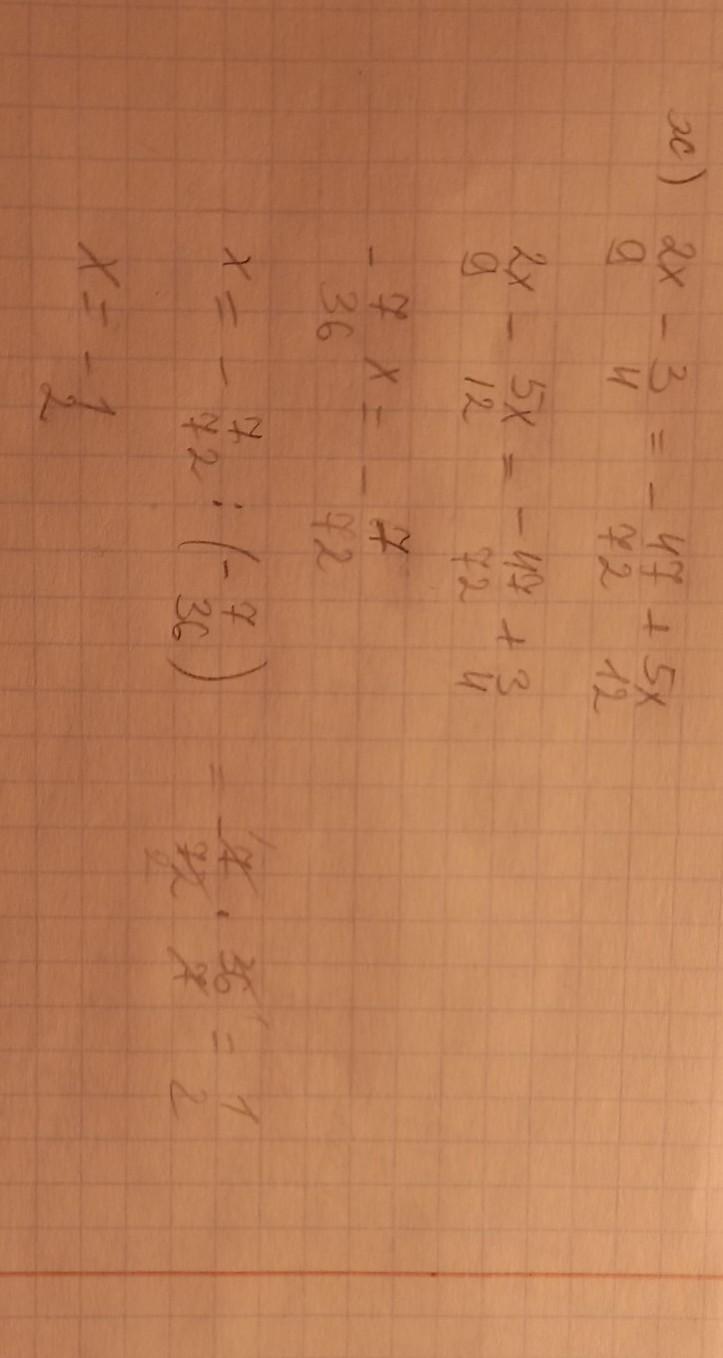 ж) 2x/9 - 3/4 = - 47/72 + 5x/12
2x/9 - 5x/12 = - 47/72 + 3/4
- 7/36 x = - 7/72
x = - 7/72 : (- 7/36) = - 7/72 · 36/7 = 1/2
x = - 1/2